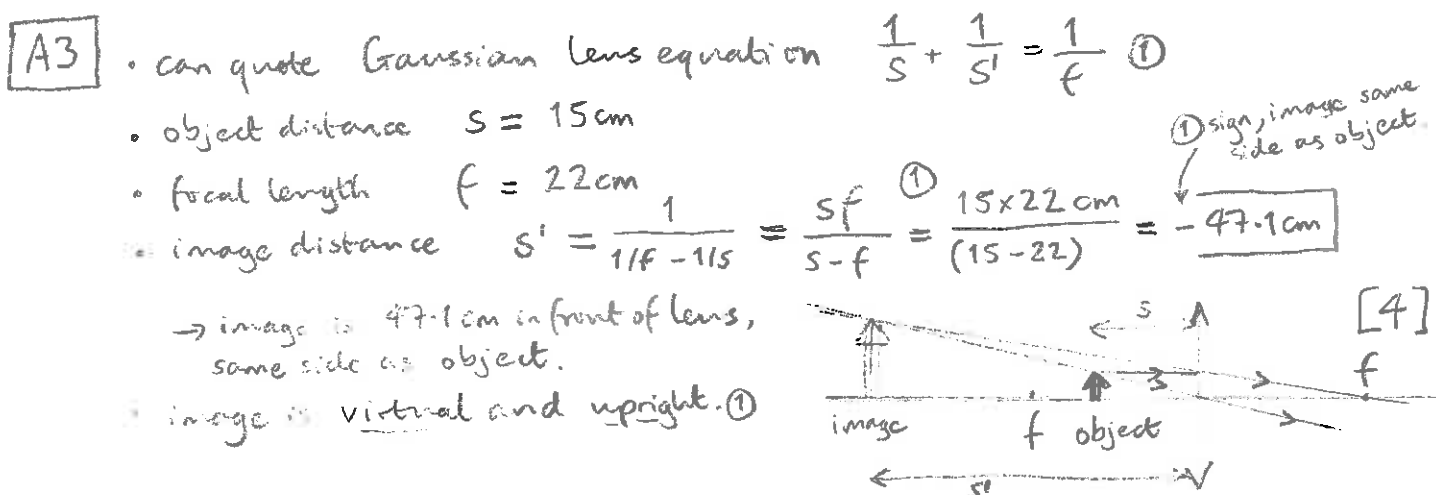 A3 • can quote Gaussian lens equation 1/s + 1/s' = 1/f ①
• object distance s = 15 cm
① sign, image same side as object
• focal length f = 22 cm
• image distance s' = 1/(1/f - 1/s) = sf/(s-f) ① = 15×22 cm/(15-22) = -47.1 cm
→ image is 47.1 cm in front of lens,
same side as object.
[4]
• image is virtual and upright. ①
s
f
image f object
s'